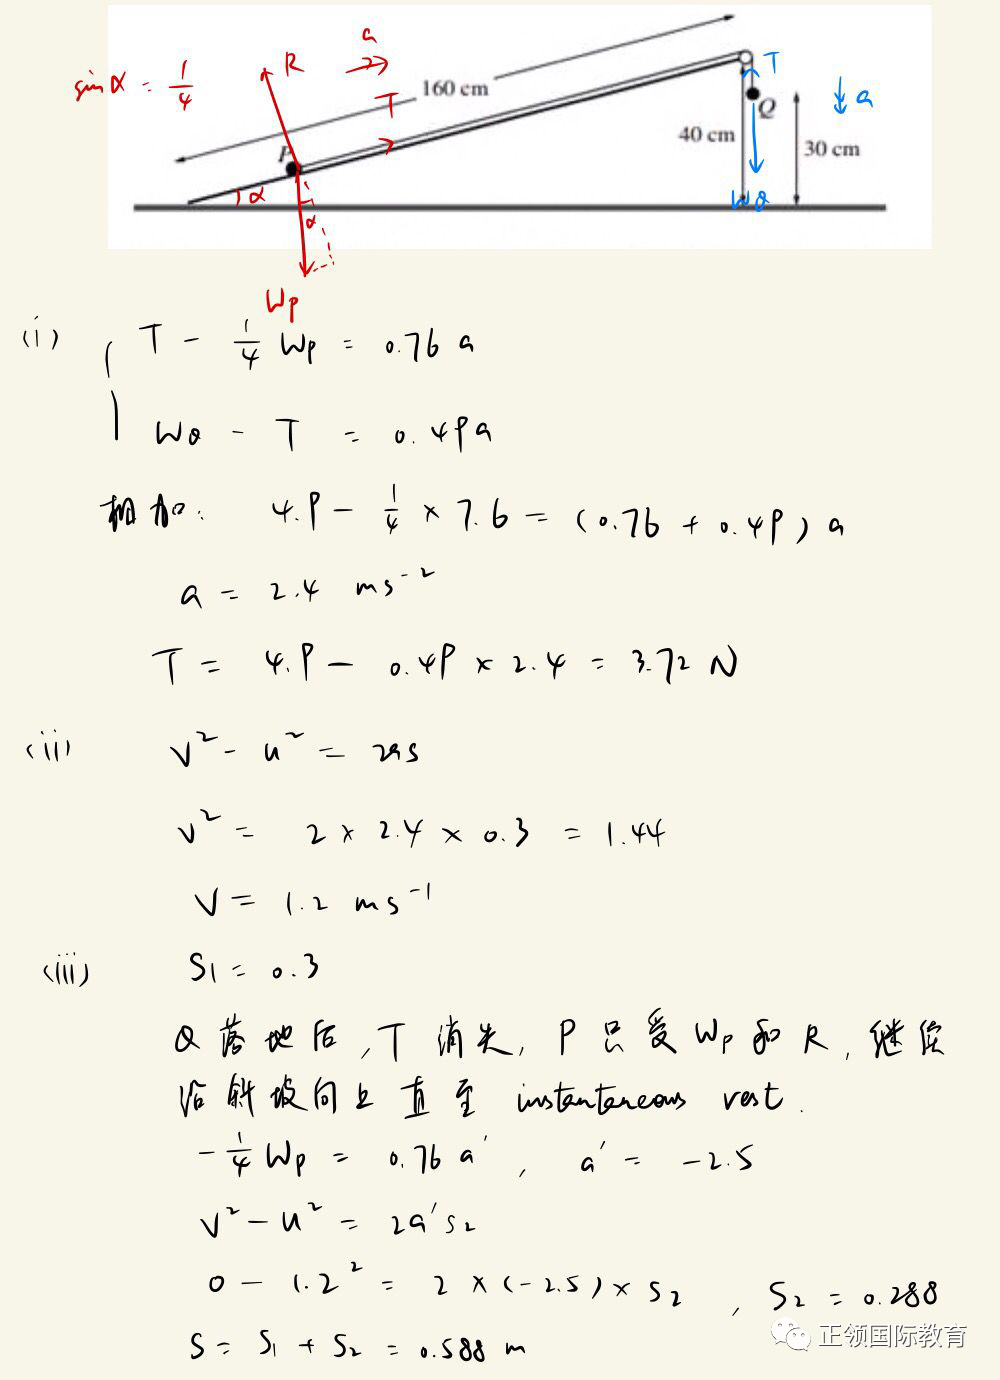 sinα = 1/4
R
a
T
160 cm
P
α
α
Wp
T
Q
a
40 cm
30 cm
WQ
(i) T - 1/4 Wp = 0.76 a
WQ - T = 0.49a
相加: 4.9 - 1/4 × 7.6 = (0.76 + 0.49) a
a = 2.4 ms⁻²
T = 4.9 - 0.49 × 2.4 = 3.72 N
(ii) v² - u² = 2as
v² = 2 × 2.4 × 0.3 = 1.44
V = 1.2 ms⁻¹
(iii) S1 = 0.3
Q 落地后, T 消失, P 只受 Wp 和 R, 继续
沿斜坡向上直至 instantaneous rest.
- 1/4 Wp = 0.76 a', a' = -2.5
v² - u² = 2a's2
0 - 1.2² = 2 × (-2.5) × S2, S2 = 0.288
S = S1 + S2 = 0.588 m
正领国际教育